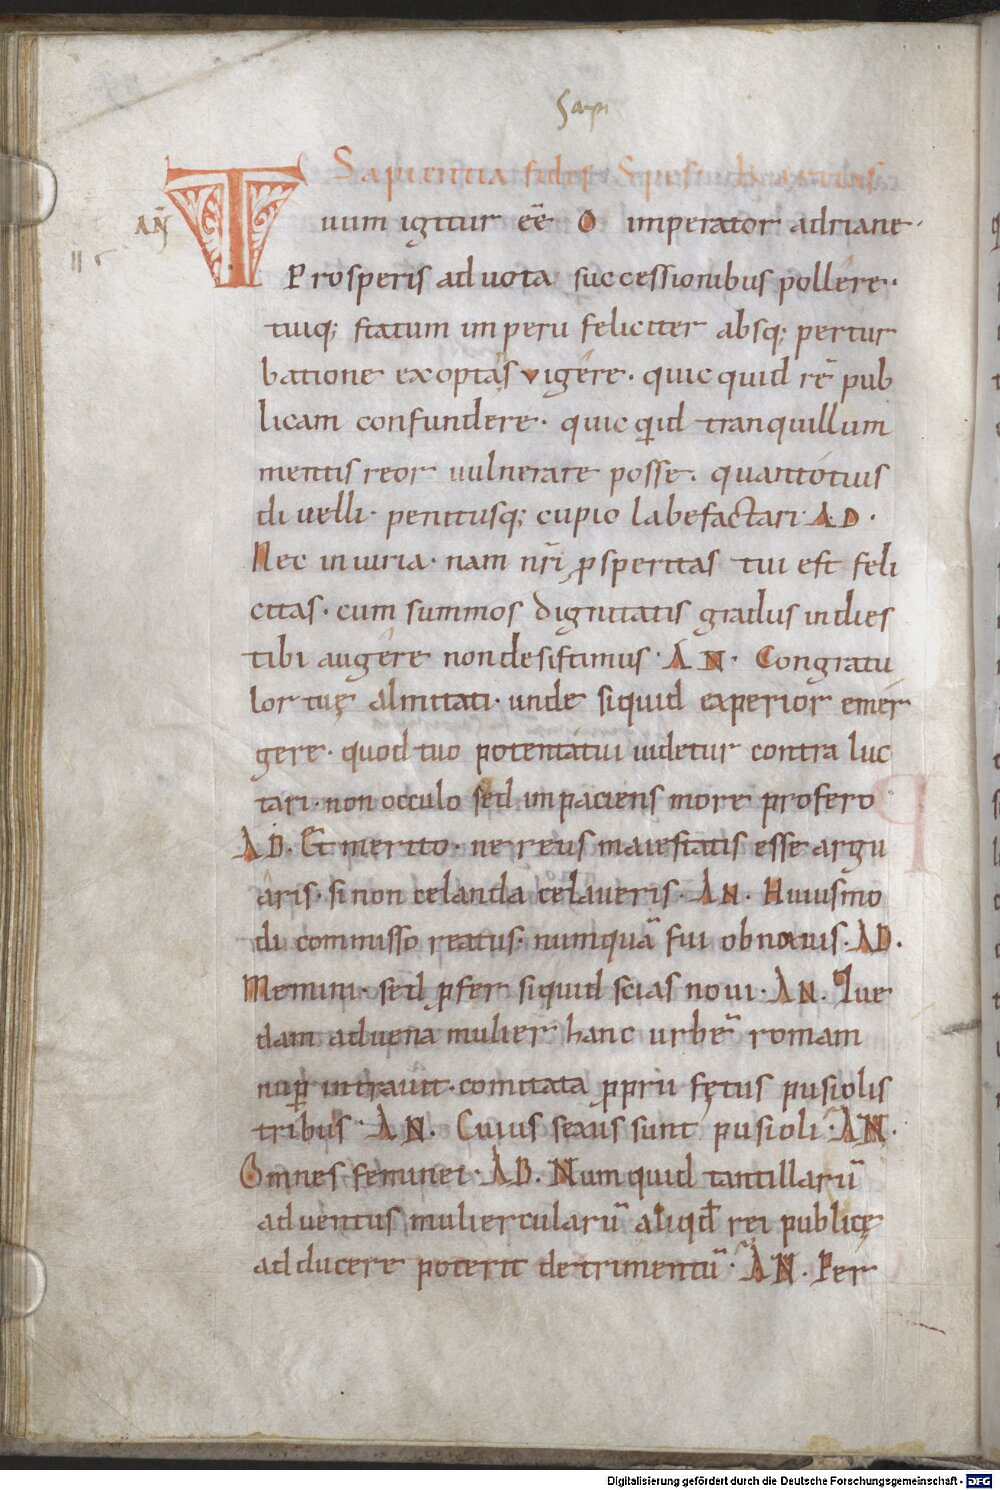 Sapi
Sapientia fides Spes Karitas
AN̄
Tuum igitur eē O imperator adriane·
Prosperis aduota successionibus pollere·
tuiq; statum imperii feliciter absq; pertur
batione exoptas vigere· quicquid rē pub
licam confundere· quicqid tranquillum
mentis reor uulnerare posse· quantotius
diuelli· penitusq; cupio labefactari· AD·
Nec iniuria· nam nr̄i p̲speritas tui est feli
citas· cum summos dignitatis gradus indies
tibi augere nondesistimus· AN· Congratu
lor tuę almitati· unde siquid experior emer
gere· quod tuo potentatui uidetur contra luc
tari· non occulo sed inpaciens more profero
AD· Et merito· ne reus maiestatis esse argu
aris· si non celanda celaueris· AN· Huiusmo
di commisso reatus· numquā fui obnoxius· AD·
Memini· sed p̲fer siquid scias noui· AN· Que
dam aduena mulier hanc urbē romam
nup̲ intrauit· comitata p̲prii fętus pusiolis
tribus· AN· Cuius sexus sunt pusioli· AN·
Omnes feminei· AD· Numquid tantillarū
aduentus muliercularū aliqđ rei publicę
adducere poterit detrimentū· AN· Per
Digitalisierung gefördert durch die Deutsche Forschungsgemeinschaft - DFG